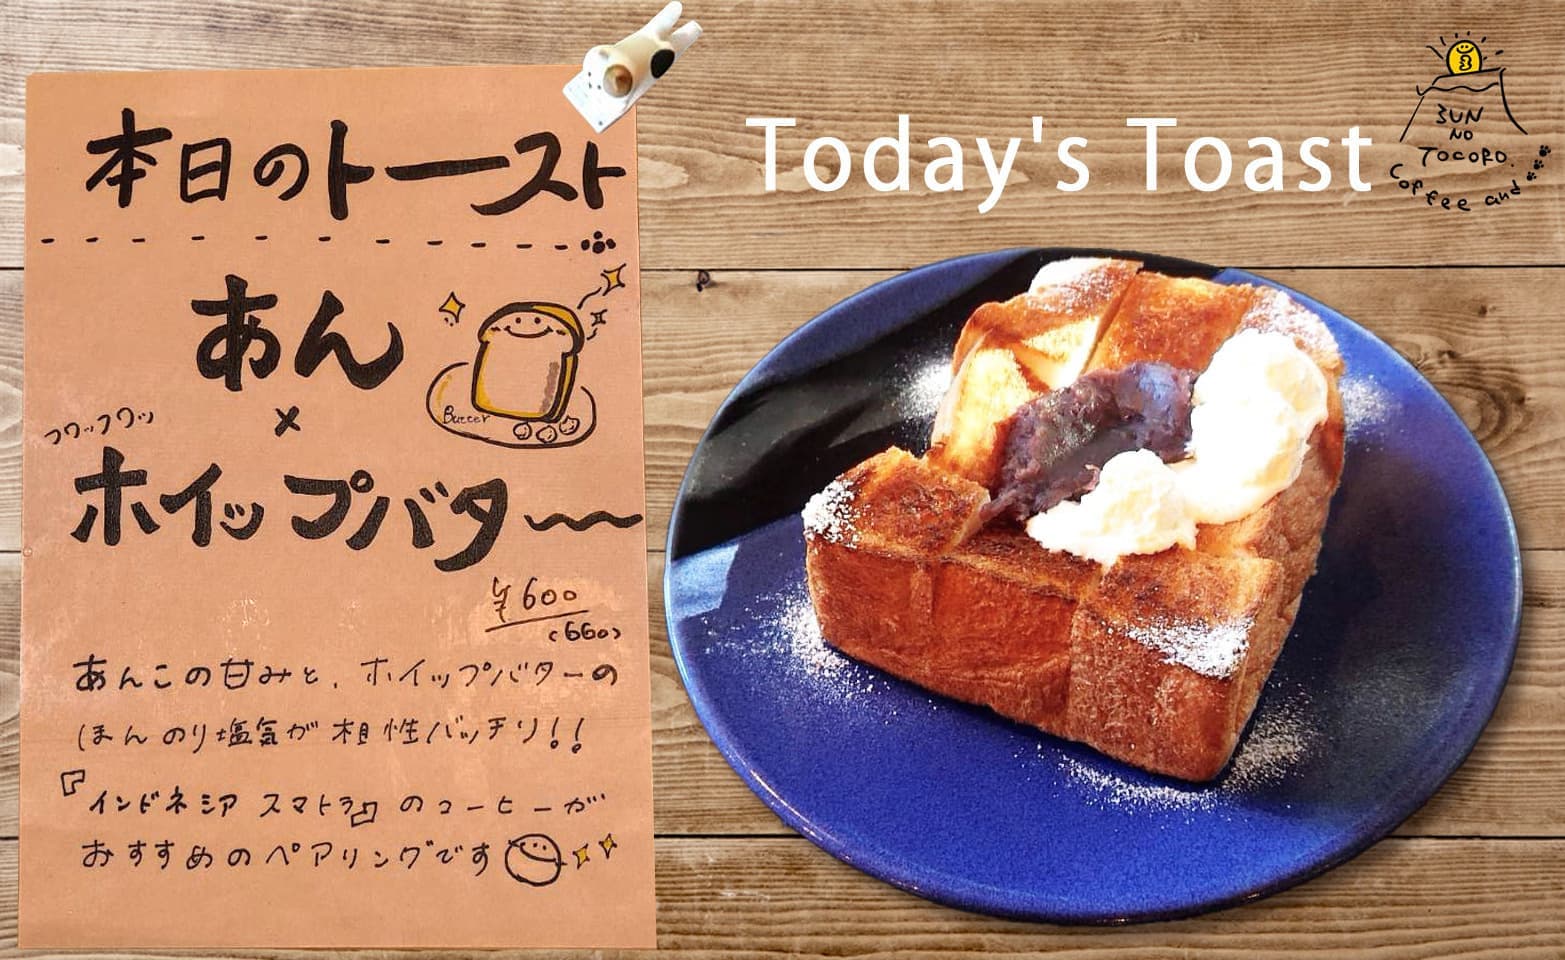 本日のトースト
あん
×
フワッフワッ
ホイップバター〜
Butter
¥600
(660)
あんこの甘みと、ホイップバターの
ほんのり塩気が相性バッチリ!!
『インドネシア スマトラ』のコーヒーが
おすすめのペアリングです
Today's Toast
3
3UN
NO
TOCORO.
Coffee and